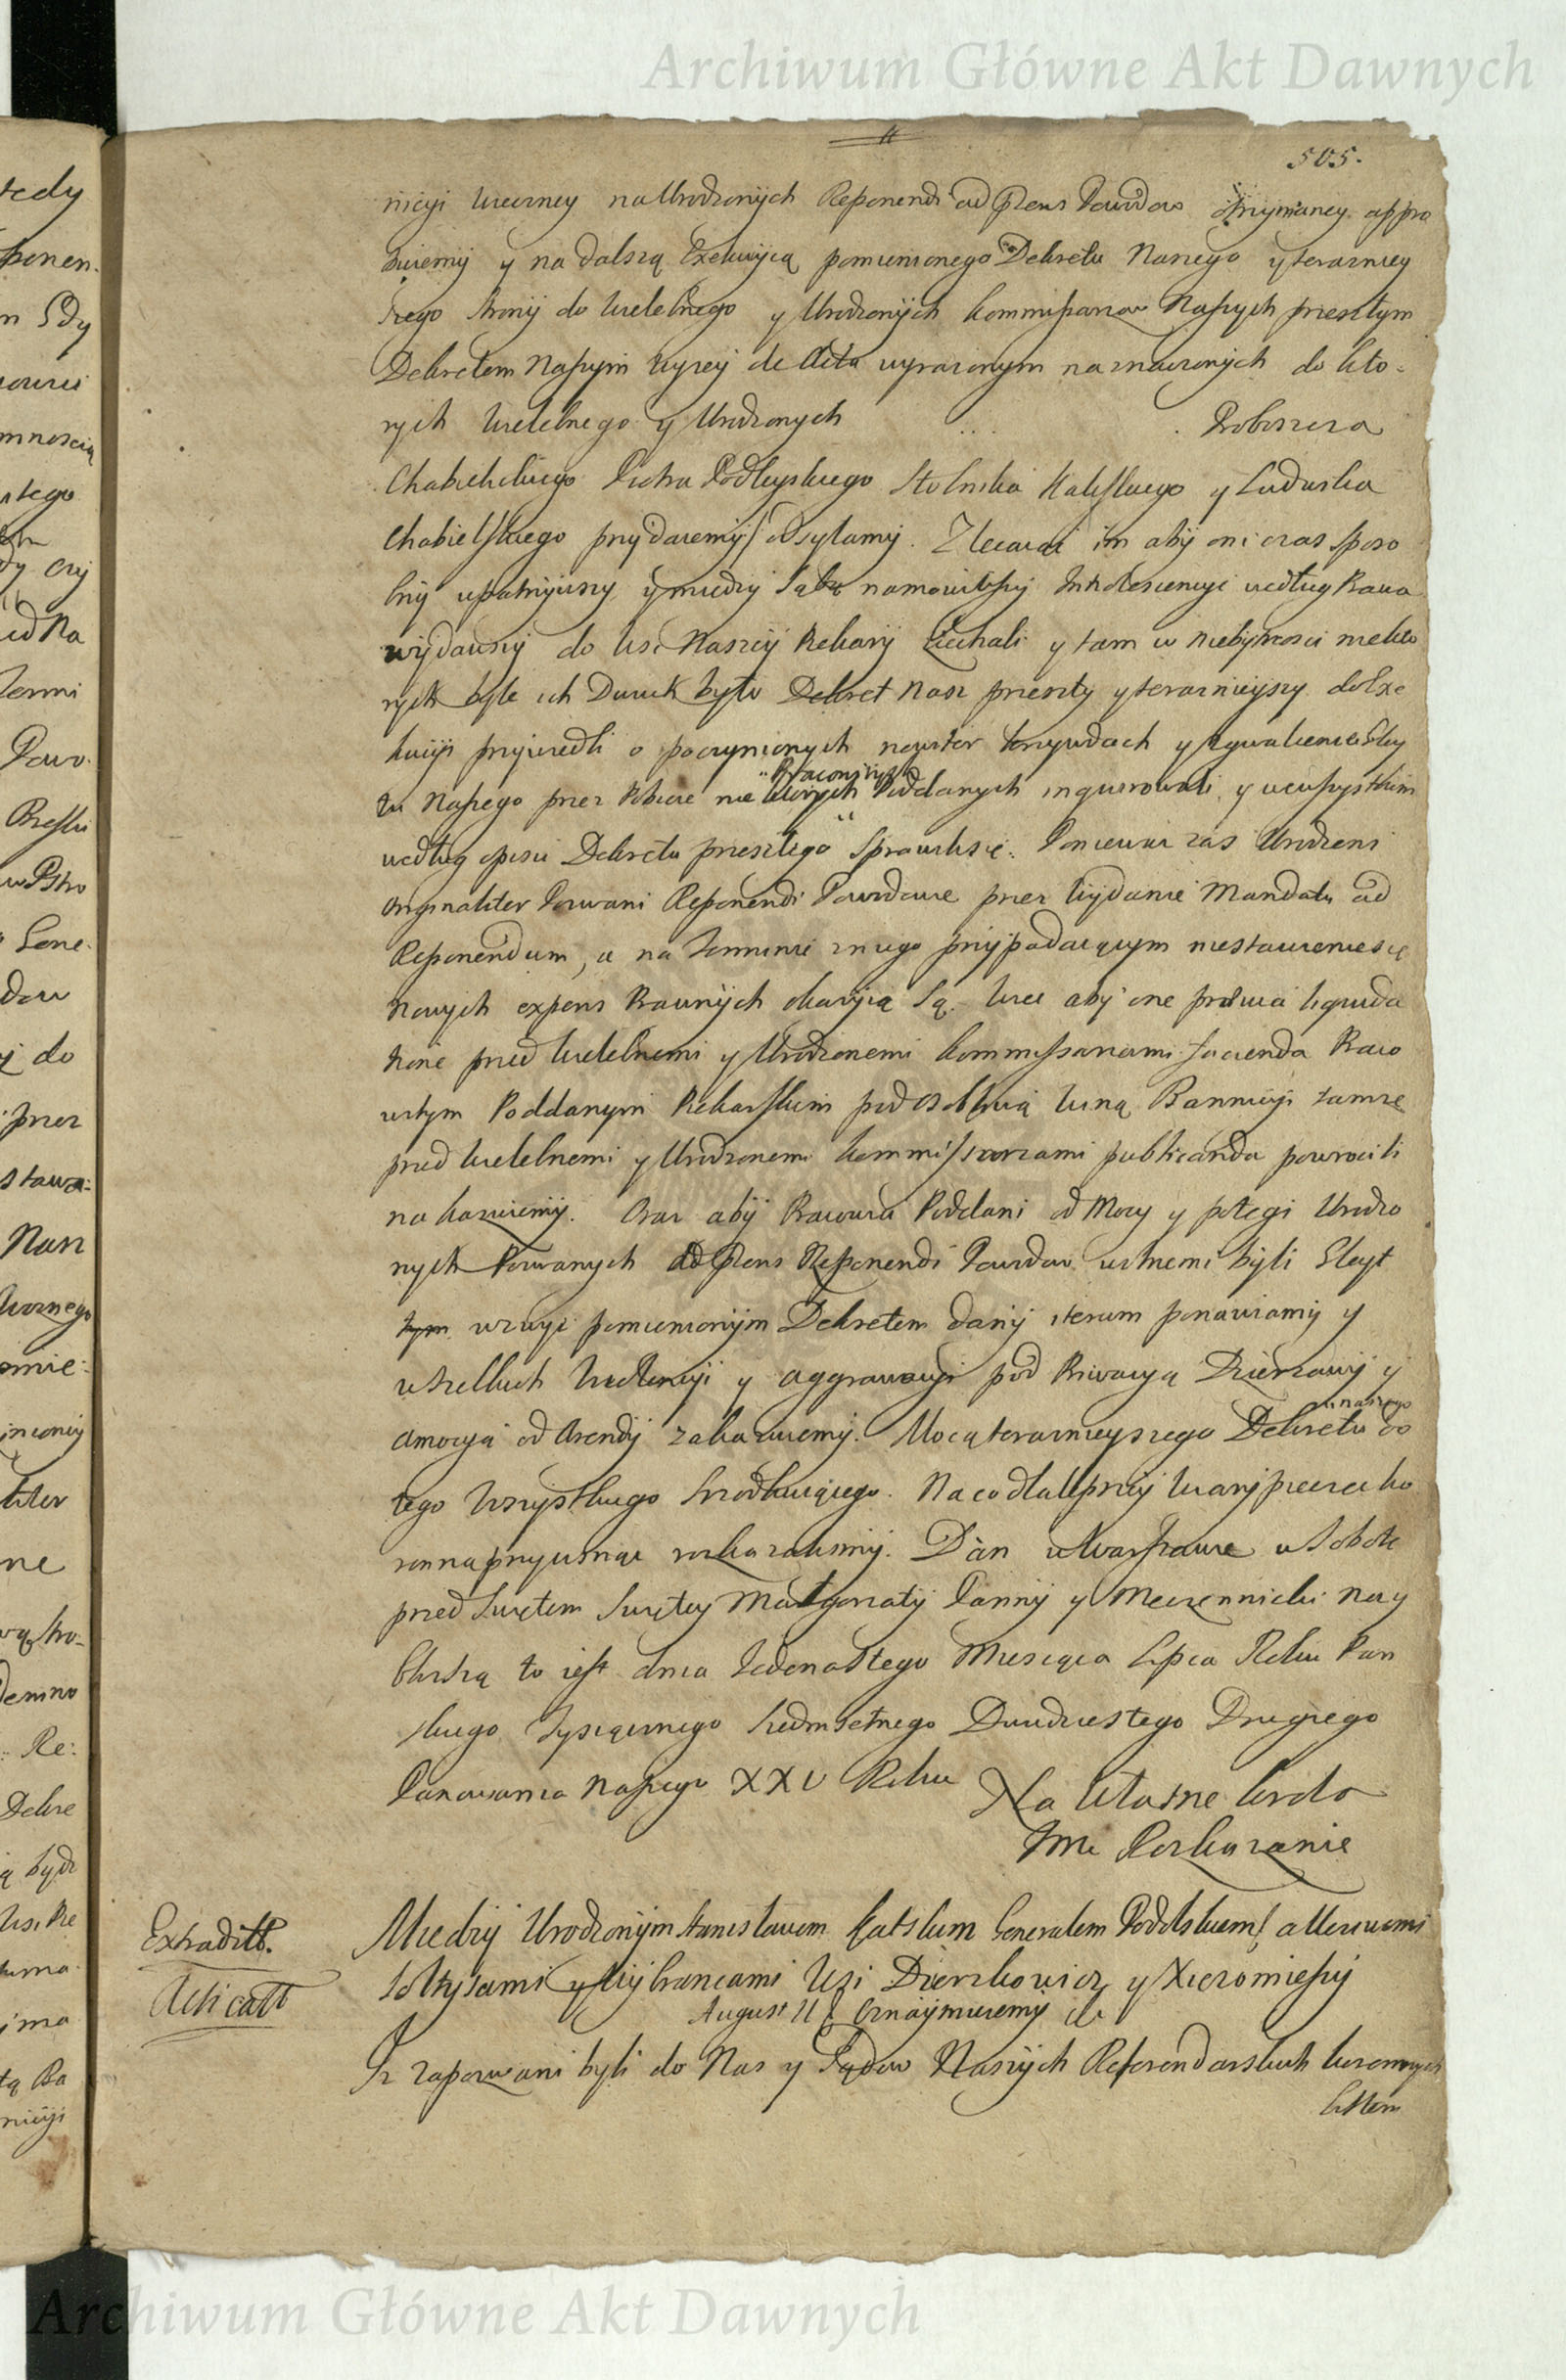 Archiwum Główne Akt Dawnych
505.
nicyi wieczney na Urodzonych Reponendi ad Prens Pozwów otrzymaney appro
buiemy y na dalszą Exekucyią pomienionego Dekretu Naszego y teraznieỹ
szego strony do Wielebnego y Urodzonych Kommissarzow Naszych przeszłym
Dekretem Naszym wyzey de Acta wyrazonym naznaczonych do kto-
rych Wielebnego y Urodzonych Proboszcza
Chabielskiego Piotra Podłęyskiego Stolnika Kaliskiego y Ludwika
Chabielskiego przydaiemy odsyłamy. Zlecaiąc im aby oni czas sposo
bny upatrzywszy y między sobą namowiwszy Innotescencyi według Prawa
wydawszy do wsi Naszey Piekary ziechali y tam w niebytnosci niekto
rych byle ich Dwuch było Dekret Nasz przeszły y teraznieyszy do Exe
kucyi przywiedli o poczynionych krzywdach y zgwałceniu Gley
tu Naszego przez Pobicie nie ktorych Poddanych inquirowali y we wszystkim
według opisu Dekretu przeszłego sprawilisię. Poniewaz zas Urodzeni
originaliter Pozwani Reponendi Pozwowie przez Wydanie Mandatu ad
Reponendum, a na Terminie z niego przypadaiącym niestawieniesię
nowych expens Prawnych okazyią są. Więc aby one previa liquida
tione przed Wielebnemi y Urodzonemi Kommissarzami facienda Praco
witym Poddanym Piekarskim pod osobliwą winą Bannicyi tamze
przed Wielebnemi y Urodzonemi Kommissarzami publicanda powrocili
nakazuiemy. Oraz aby Pracowici Poddani od Mocy y potęgi Urodzo
nych Pozwanych ad Prens Reponendi Pozwow wolnemi byli Gleyt
tym wzwyz pomienionym Dekretem dany iterum ponawiamy y
wszelkich Violencyi y aggrawacyi pod Privacyą Dzierzawy y
amocyą od Arendy zakazuiemy. Mocą teraznieyszego Dekretu naszego do
tego wszystkiego srzodkuiącego. Na co dla lepszey wiary pieczęć Ko
ronną przycisnąc rozkazalismy. Dan w Warszawie w Sobotę
przed Swiętem Swiętey Małgorzaty Panny y Męczenniczki nay
blizszą to iest dnia Iedenastego Miesiąca Lipca Roku Pan
skiego Tysiącznego Siedmsetnego Dwudziestego Drugiego
Panowania Naszego XXV Roku
Na Własne Kroló
JMci Rozkazanie
Extraditt.
Między Urodzonym Stanisławem Kątskim Generałem Podolskiem a Uczciwemi
Sołtysami y Wybrancami Wsi Dzierzkowicz y Xięzomieszy
August II Oznaymuiemy etc
Iz zapozwani byli do Nas y Sądow Naszych Referendarskich Koronnych
listem
Archiwum Główne Akt Dawnych